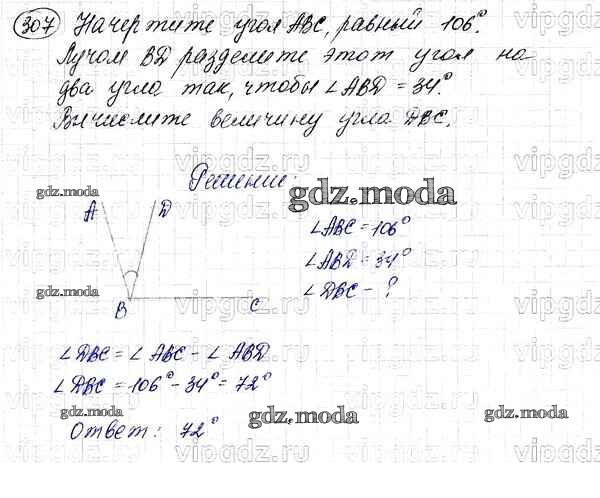 307 Начертите угол ABC, равный 106°.
Лучом BD разделите этот угол на
два угла так, чтобы ∠ABD = 34°.
Вычислите величину угла DBC.
Решение:
gdz.moda
gdz.moda
A D
∠ABC = 106°
∠ABD = 34°
gdz.moda
gdz.moda
∠DBC - ?
B C
∠DBC = ∠ABC - ∠ABD
∠DBC = 106° - 34° = 72°
gdz.moda
gdz.moda
gdz.moda
Ответ: 72°
vipgdz.ru